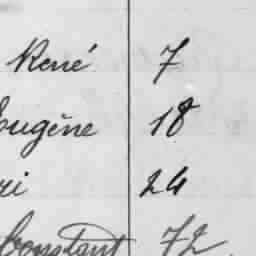 René 7
Eugène 18
ri 24
Constant 72